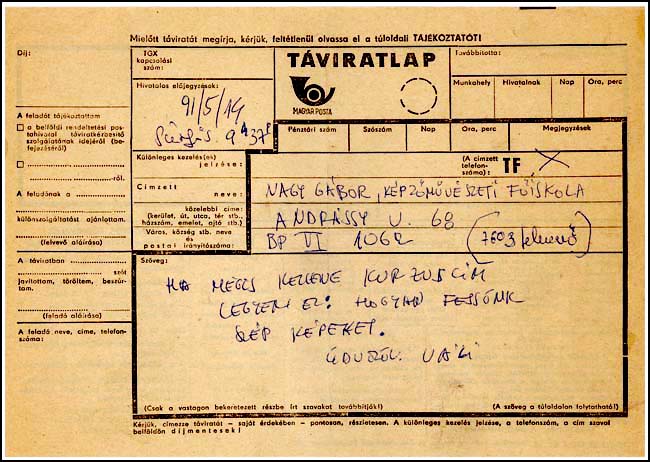 Mielőtt táviratát megírja, kérjük, feltétlenül olvassa el a túloldali TÁJÉKOZTATÓT!
Díj:
TGX
kapcsolási
szám:
TÁVIRATLAP
MAGYAR POSTA
Továbbította:
Munkahely Hivatalnak Nap Óra, perc
Hivatalos előjegyzések:
91/5/14
Pénztári szám Szószám Nap Óra, perc Megjegyzések
A feladót tájékoztattam
a belföldi rendeltetési pos-
tahivatal táviratkézbesítő
szolgálatának idejéről (be-
fejezéséről)
-ról.
A feladónak a
különszolgáltatást ajánlottam.
(felvevő aláírása)
A táviratban
szót
javítottam, töröltem, beszúr-
tam.
(feladó aláírása)
A feladó neve, címe, telefon-
száma:
Különleges kezelés(ek)
jelzése:
(A címzett
telefon-
száma:) TF
Címzett
neve:
NAGY GÁBOR, KÉPZŐMŰVÉSZETI FŐISKOLA
közelebbi címe:
(kerület, út, utca, tér stb.,
házszám, emelet, ajtó stb.)
ANDRÁSSY U. 68
Város, község stb. neve
és
postai irányítószáma:
BP VI 1062
Szöveg:
HA MÉGIS KELLENE KURZUSCÍM
LEGYEN EZ: HOGYAN FESSÜNK
SZÉP KÉPEKET.
ÜDVÖZÖL VALI
(Csak a vastagon bekeretezett részbe írt szavakat továbbítjuk!) (A szöveg a túloldalon folytatható!)
Kérjük, címezze táviratát – saját érdekében – pontosan, részletesen. A különleges kezelés jelzése, a telefonszám, a cím szavai
belföldön díjmentesek!